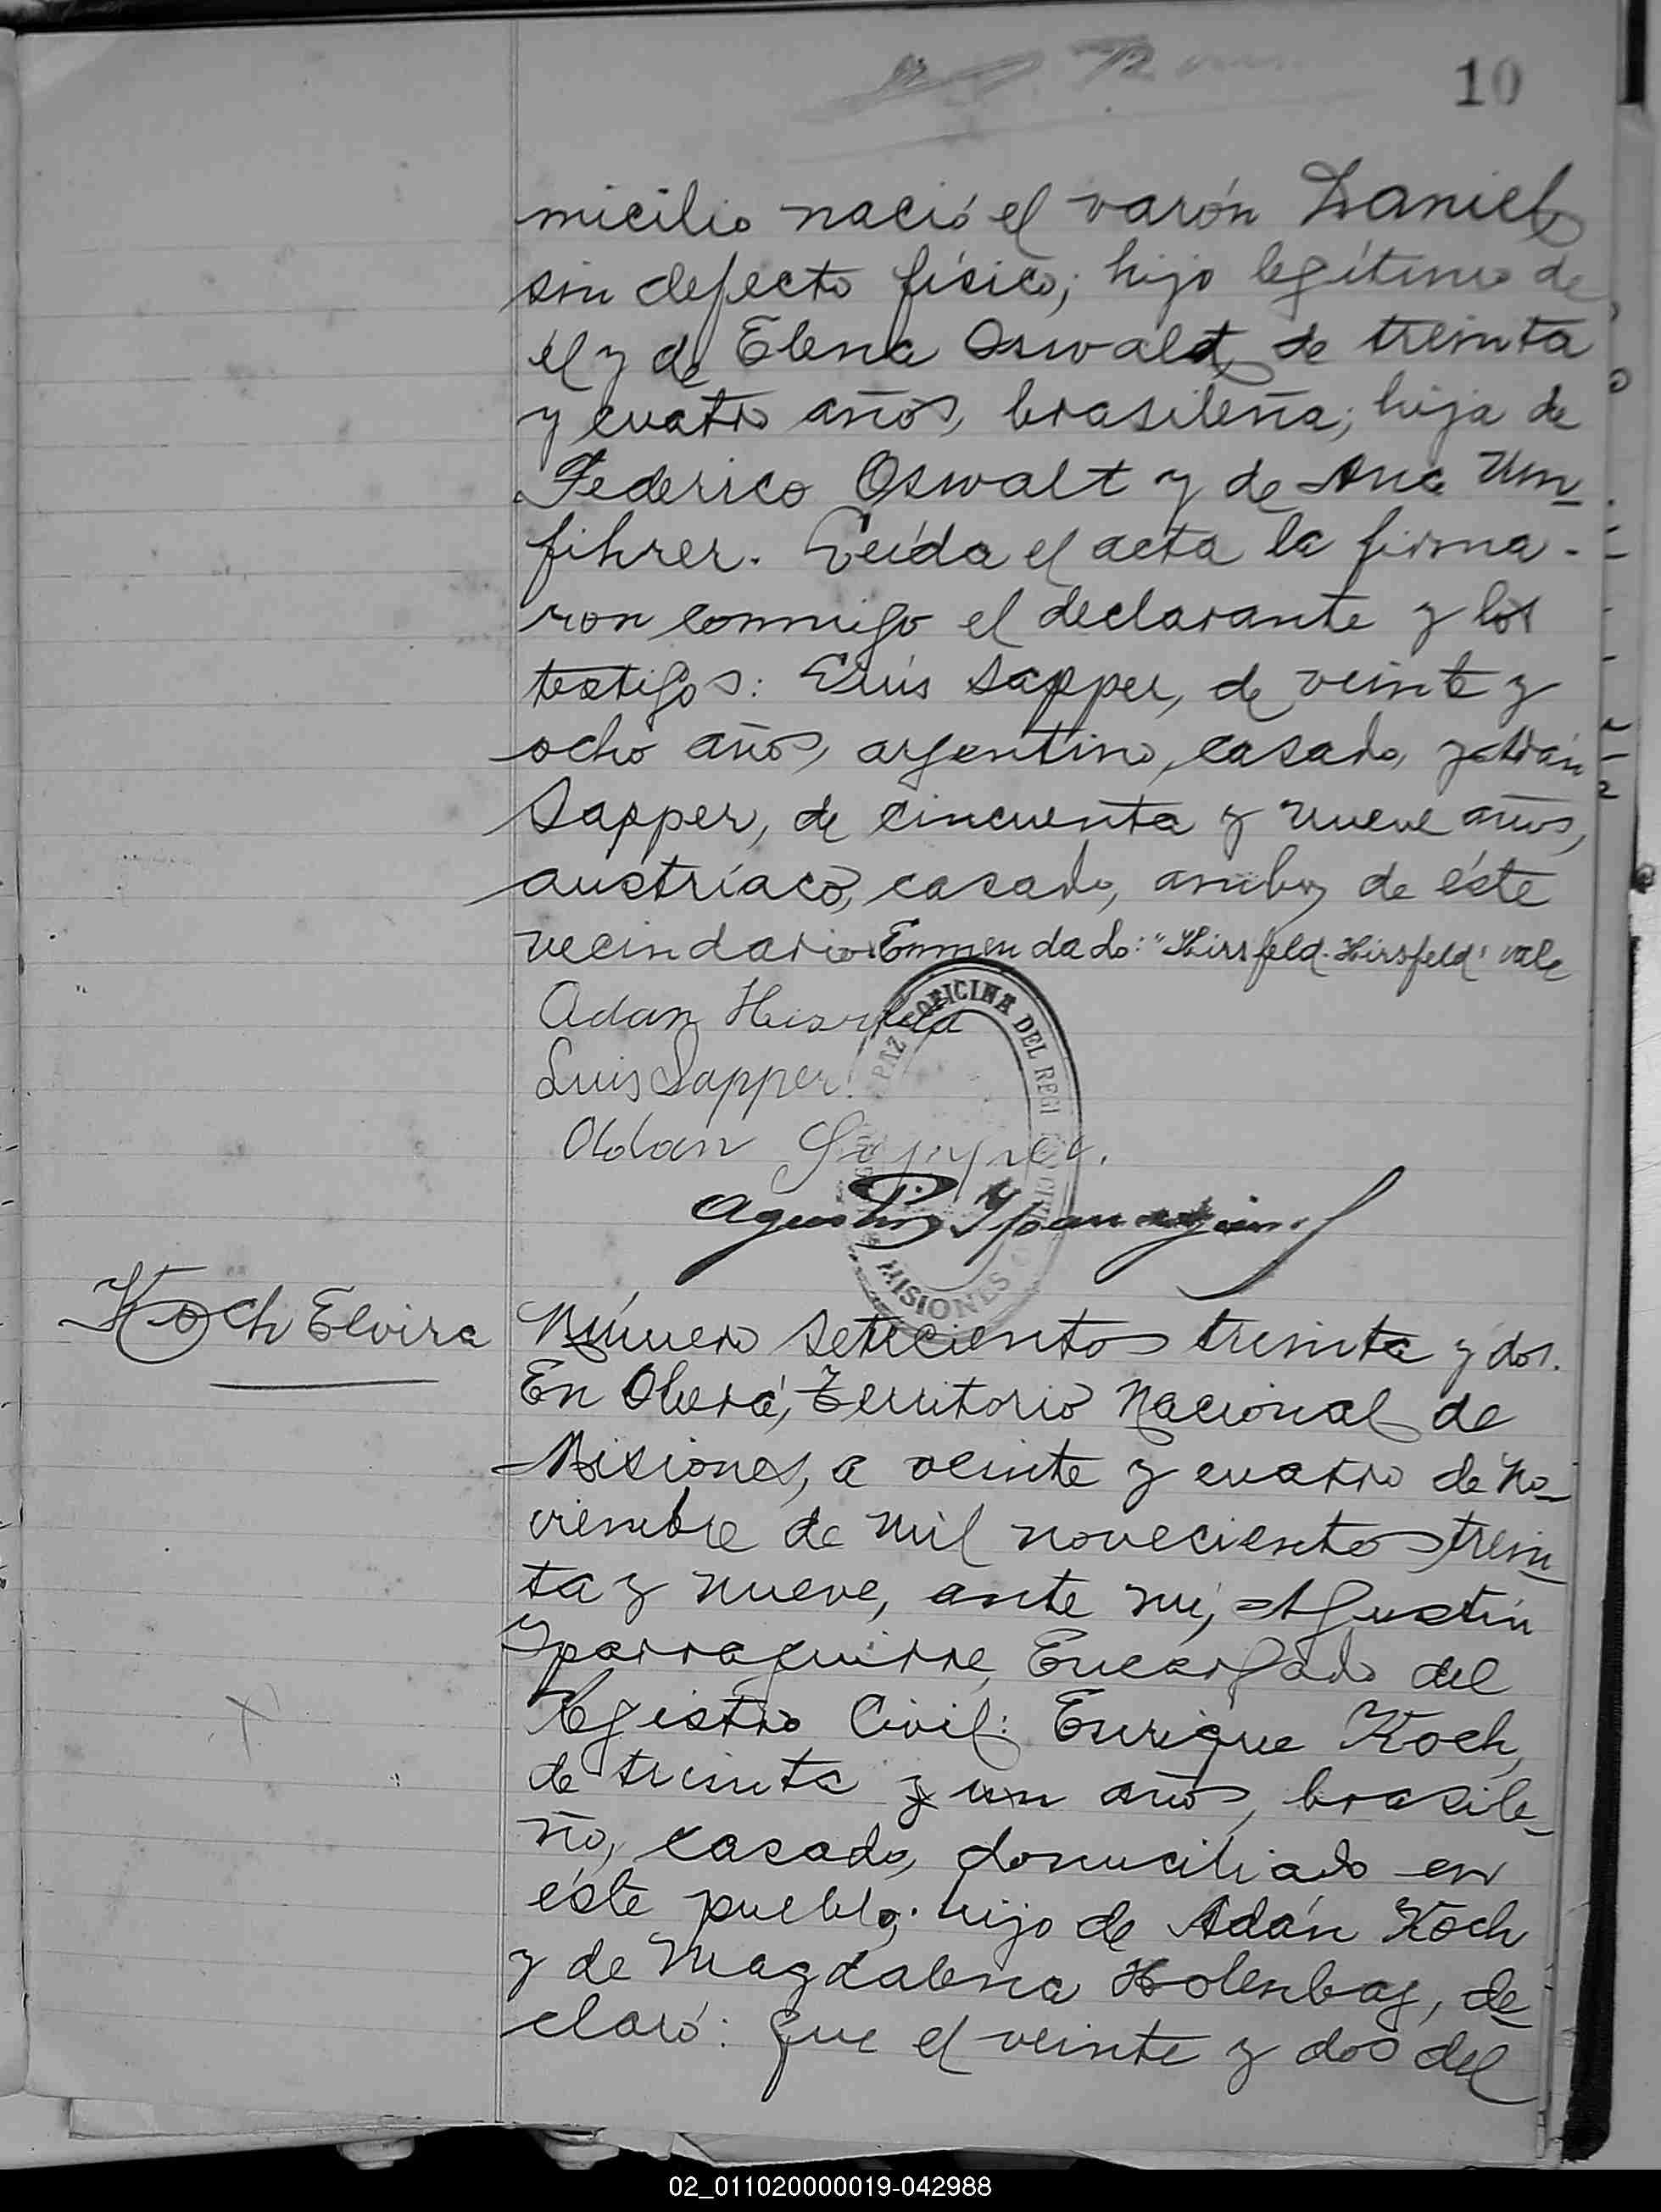 10
micilio nació el varón Daniel
sin defecto físico; hijo legítimo de
él y de Elena Oswald, de treinta
y cuatro años, brasileña; hija de
Federico Oswalt y de Ana Um-
fihrer. Leída el acta la firma-
ron conmigo el declarante y los
testigos: Luis Sapper, de veinte y
ocho años, argentino, casado, y Adán
Sapper, de cincuenta y nueve años,
austríaco, casado, ambos de éste
vecindario. Enmendado: "Hirsfeld-Hirsfeld" vale
Adan
Luis Sapper
Adan
OFICINA DEL REGI
PAZ
MISIONES
Koch Elvira
Número setecientos treinta y dos.
En Oberá, Territorio Nacional de
Misiones, a veinte y cuatro de No-
viembre de mil novecientos trein-
ta y nueve, ante mí, Agustín
Yparraguirre, Encargado del
Registro Civil: Enrique Koch,
de treinta y un años, brasile-
ño, casado, domiciliado en
éste pueblo; hijo de Adán Koch
y de Magdalena Holenbag, de-
claró: que el veinte y dos del
02_011020000019-042988